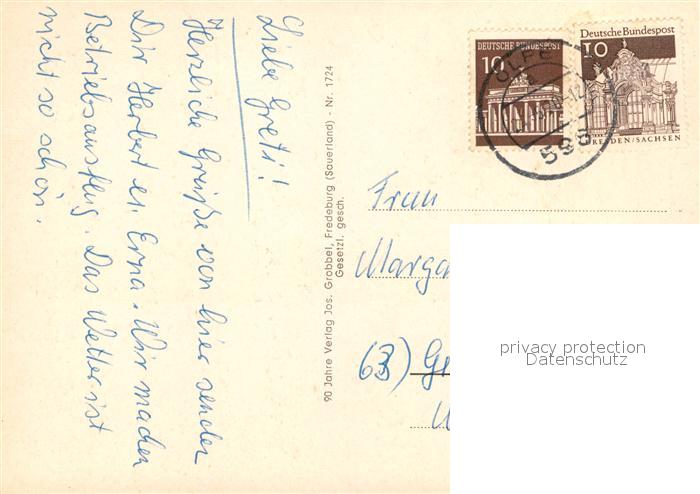 Liebe Greti!
Herzliche Grüße von hier senden
Dir Herbert u. Erna. Wir machen
Betriebsausflug. Das Wetter ist
nicht so schön.
90 Jahre Verlag Jos. Grobbel, Fredeburg (Sauerland) - Nr. 1724
Gesetzl. gesch.
DEUTSCHE BUNDESPOST
10
Deutsche Bundespost
10
DRESDEN/SACHSEN
OLPE
596
Frau
Marga
(63) Ge
privacy protection
Datenschutz